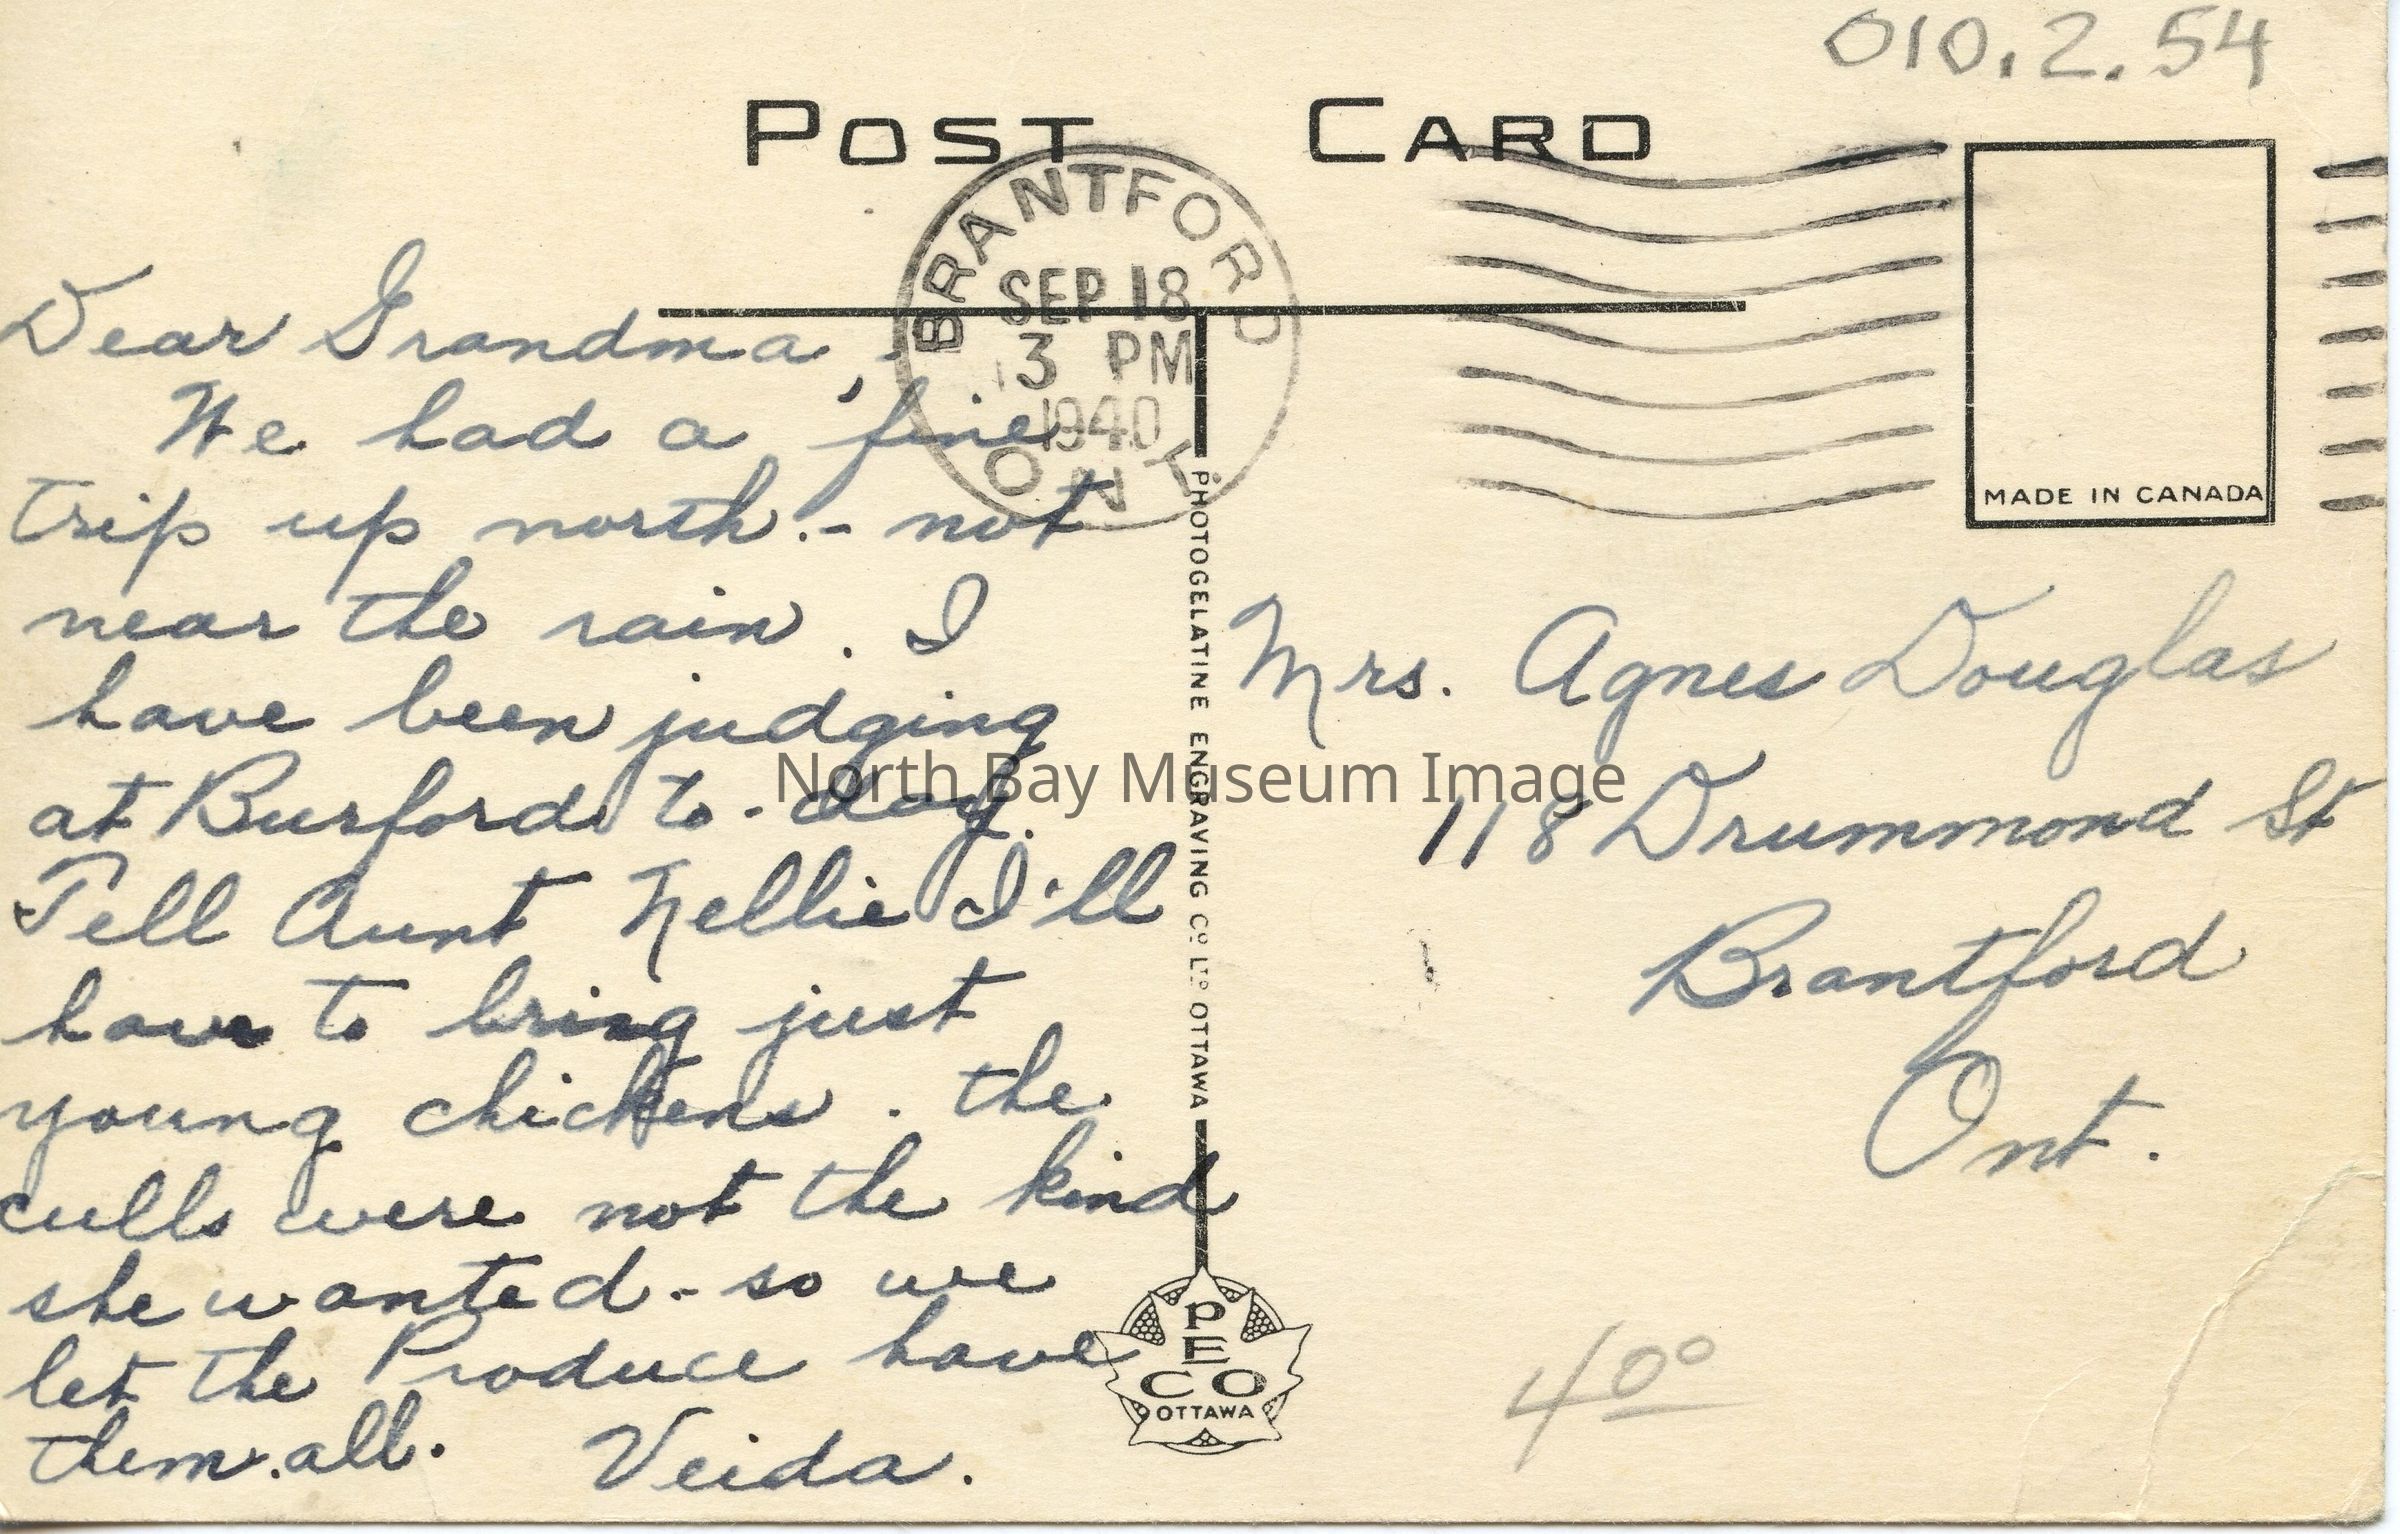 010.2.54
POST CARD
BRANTFORD
SEP 18
3 PM
1940
ONT
MADE IN CANADA
Dear Grandma,
We had a fine
trip up north. - not
near the rain. I
have been judging
at Burford to-day.
Tell Aunt Nellie I'll
have to bring just
young chickens. the
culls were not the kind
she wanted - so we
let the Produce have
them all. Veida.
PHOTOGELATINE ENGRAVING CO. LTD. OTTAWA
PECO
OTTAWA
Mrs. Agnes Douglas
118 Drummond St
Brantford
Ont.
4 00
North Bay Museum Image